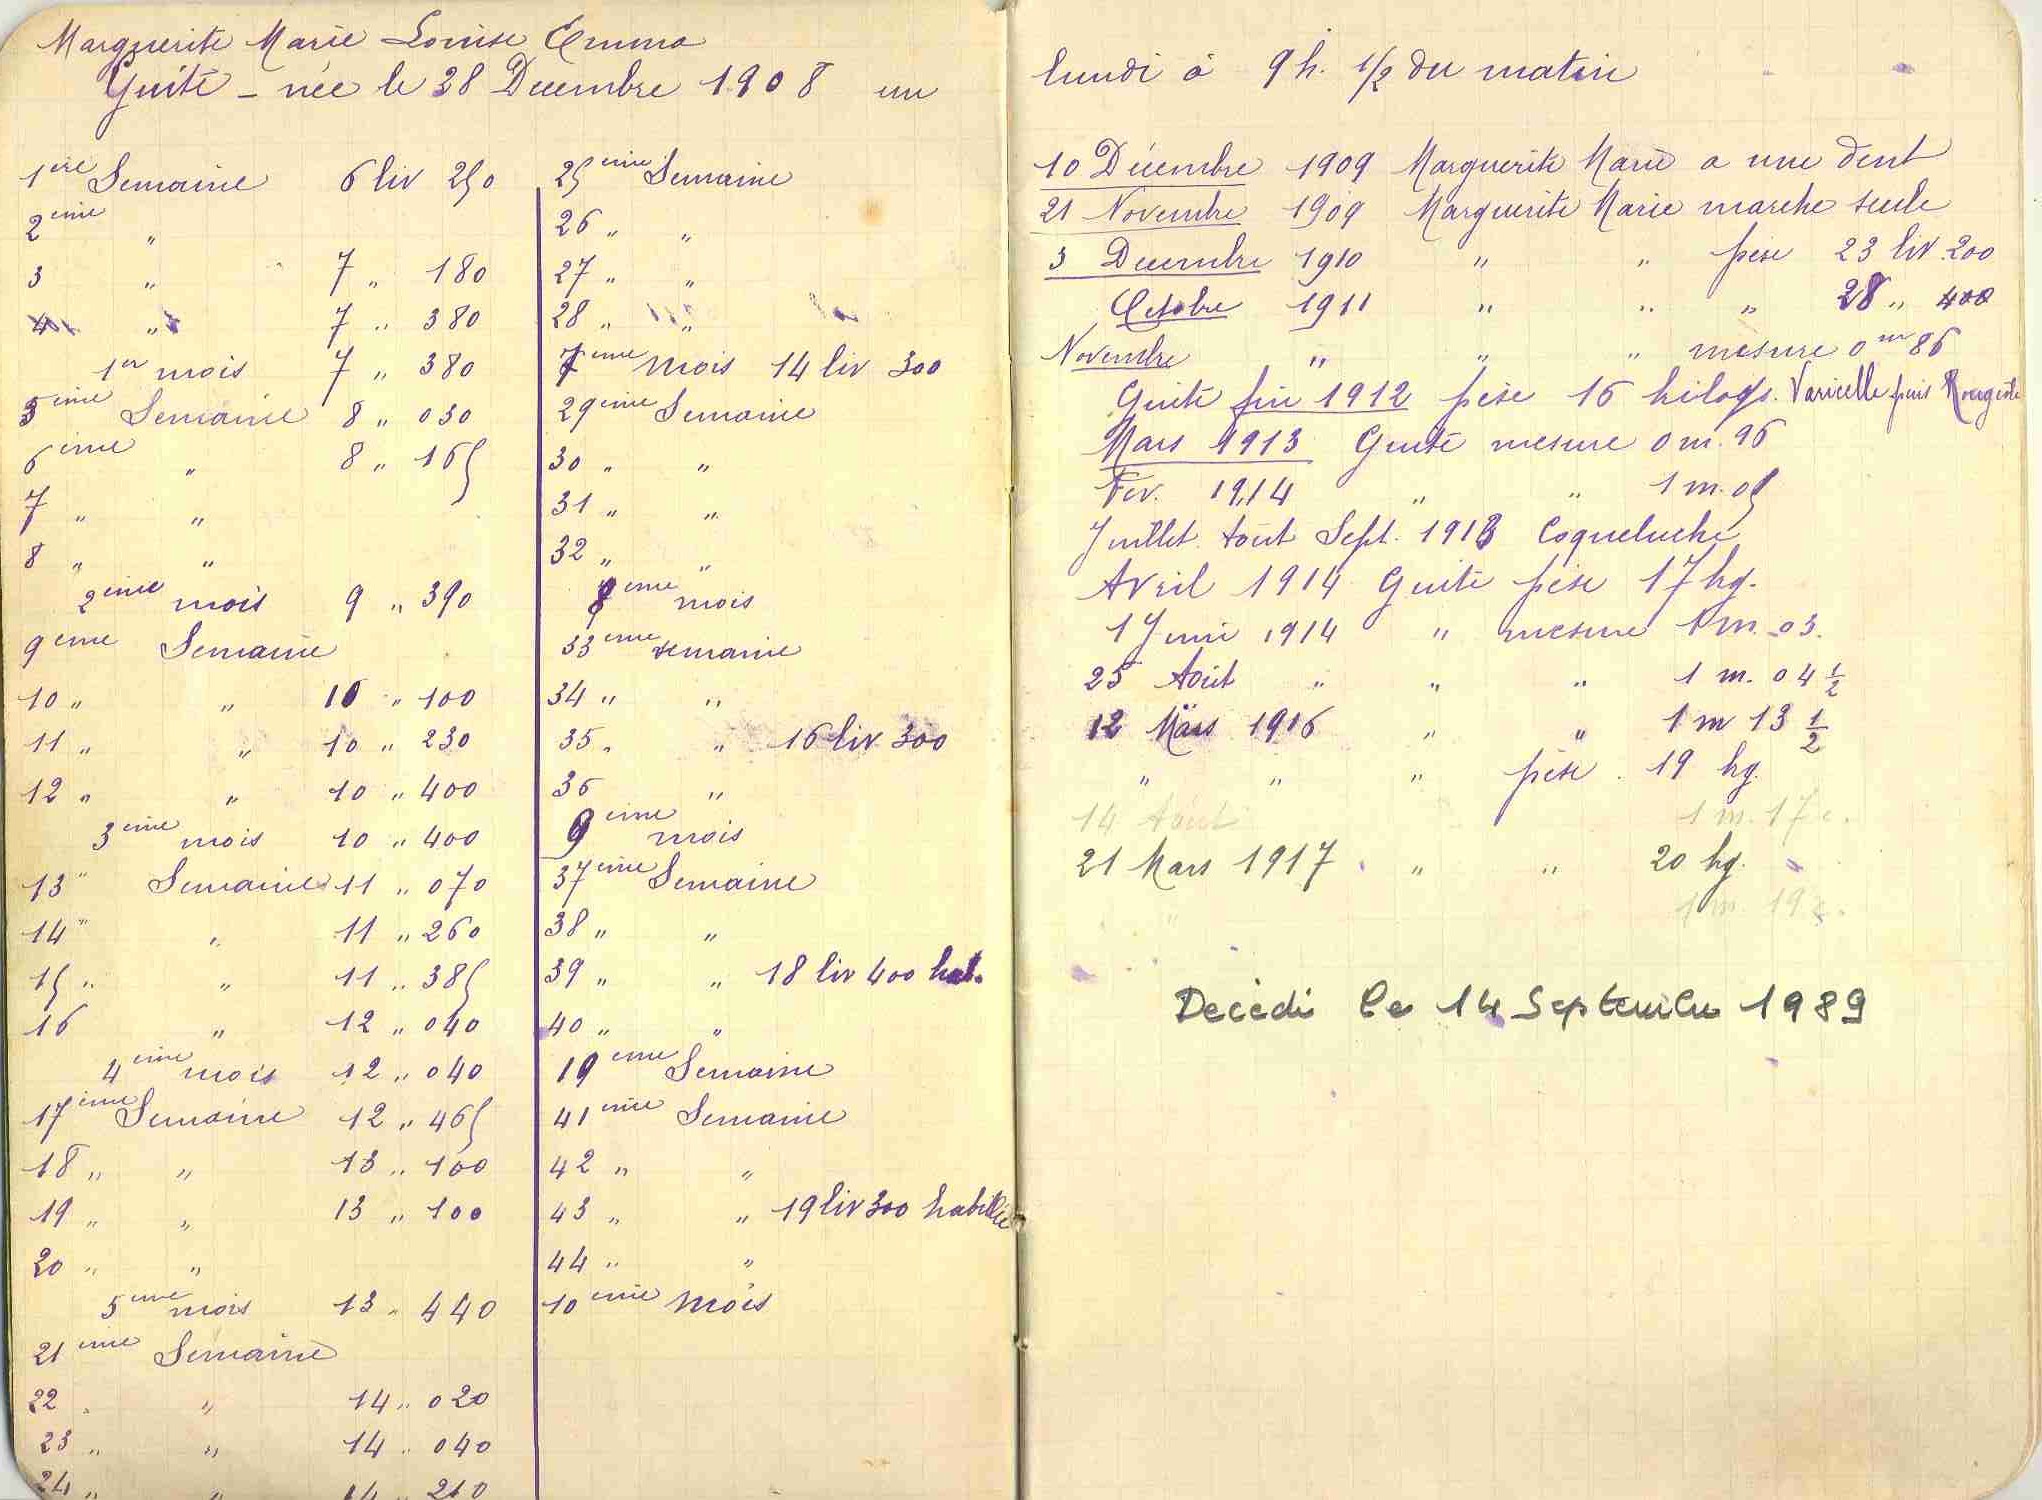 Marguerite Marie Louise Emma
Guite - née le 28 Decembre 1908 un
1ère Semaine 6 liv 250
2ème "
3 " 7 " 180
4 " 7 " 380
1er mois 7 " 380
5ème Semaine 8 " 030
6ème " 8 " 165
7 " "
8 " "
2ème mois 9 " 390
9ème Semaine
10 " " 10 " 100
11 " " 10 " 230
12 " " 10 " 400
3ème mois 10 " 400
13 " Semaine 11 " 070
14 " " 11 " 260
15 " " 11 " 385
16 " 12 " 040
4ème mois 12 " 040
17ème Semaine 12 " 465
18 " " 13 " 100
19 " " 13 " 100
20 " "
5ème mois 13 " 440
21ème Semaine
22 " " 14 " 020
23 " " 14 " 040
24 " " 14 " 210
25ème Semaine
26 " "
27 " "
28 " "
7ème mois 14 liv 300
29ème Semaine
30 " "
31 " "
32 " "
8ème mois
33ème semaine
34 " "
35 " " 16 liv 300
36 "
9ème mois
37ème Semaine
38 " "
39 " " 18 liv 400 hab.
40 " "
19ème Semaine
41ème Semaine
42 " "
43 " " 19 liv 300 habillée
44 " "
10ème mois
lundi à 9 h. 1/2 du matin
10 Décembre 1909 Marguerite Marie a une dent
21 Novembre 1909 Marguerite Marie marche seule
3 Decembre 1910 " " pèse 23 liv. 200
Octobre 1911 " " " 28 " 400
Novembre " " " mesure 0m 86
Guite fin 1912 pèse 16 kilogs. Varicelle puis Rougeole
Mars 1913 Guite mesure 0 m. 96
Fev. 1914 " " 1 m. 05
Juillet Août Sept. 1913 Coqueluche
Avril 1914 Guite pèse 17 kg.
1 Juin 1914 " mesure 1 m. 03.
25 Août " " " 1 m. 04 1/2
12 Mars 1916 " " 1 m 13 1/2
" " " pèse. 19 kg.
14 Août 1 m. 17 c.
21 Mars 1917 " " 20 kg.
" 1 m. 19 c.
Decedé le 14 Septembre 1989